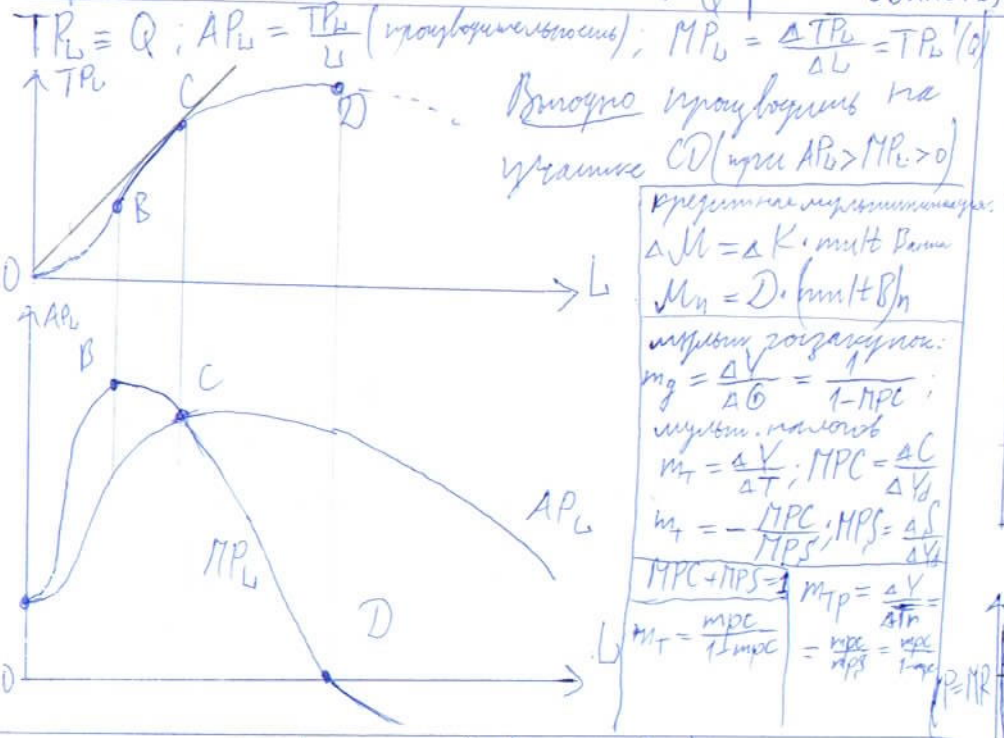 TP_L = Q ; AP_L = TP_L / L (производительность) ; MP_L = ΔTP_L / ΔL = TP_L'(Q)
TP_L
C
D
B
0
L
Выгодно производить на
участке CD (при AP_L > MP_L > 0)
кредитная мультипликация:
ΔM = ΔK · mult Банка
M_n = D · (mult B)_n
мульт. госзакупок:
m_g = ΔY / ΔG = 1 / (1-MPC) ;
мульт. налогов
m_T = ΔY / ΔT ; MPC = ΔC / ΔY_d
m_T = - MPC / MPS ; MPS = ΔS / ΔY_d
MPC + MPS = 1
m_T = mpc / (1-mpc)
m_Tp = ΔY / ΔTr =
= mpc / mps = mpc / (1-mpc)
AP_L
B
C
AP_L
MP_L
D
L
0
P=MR